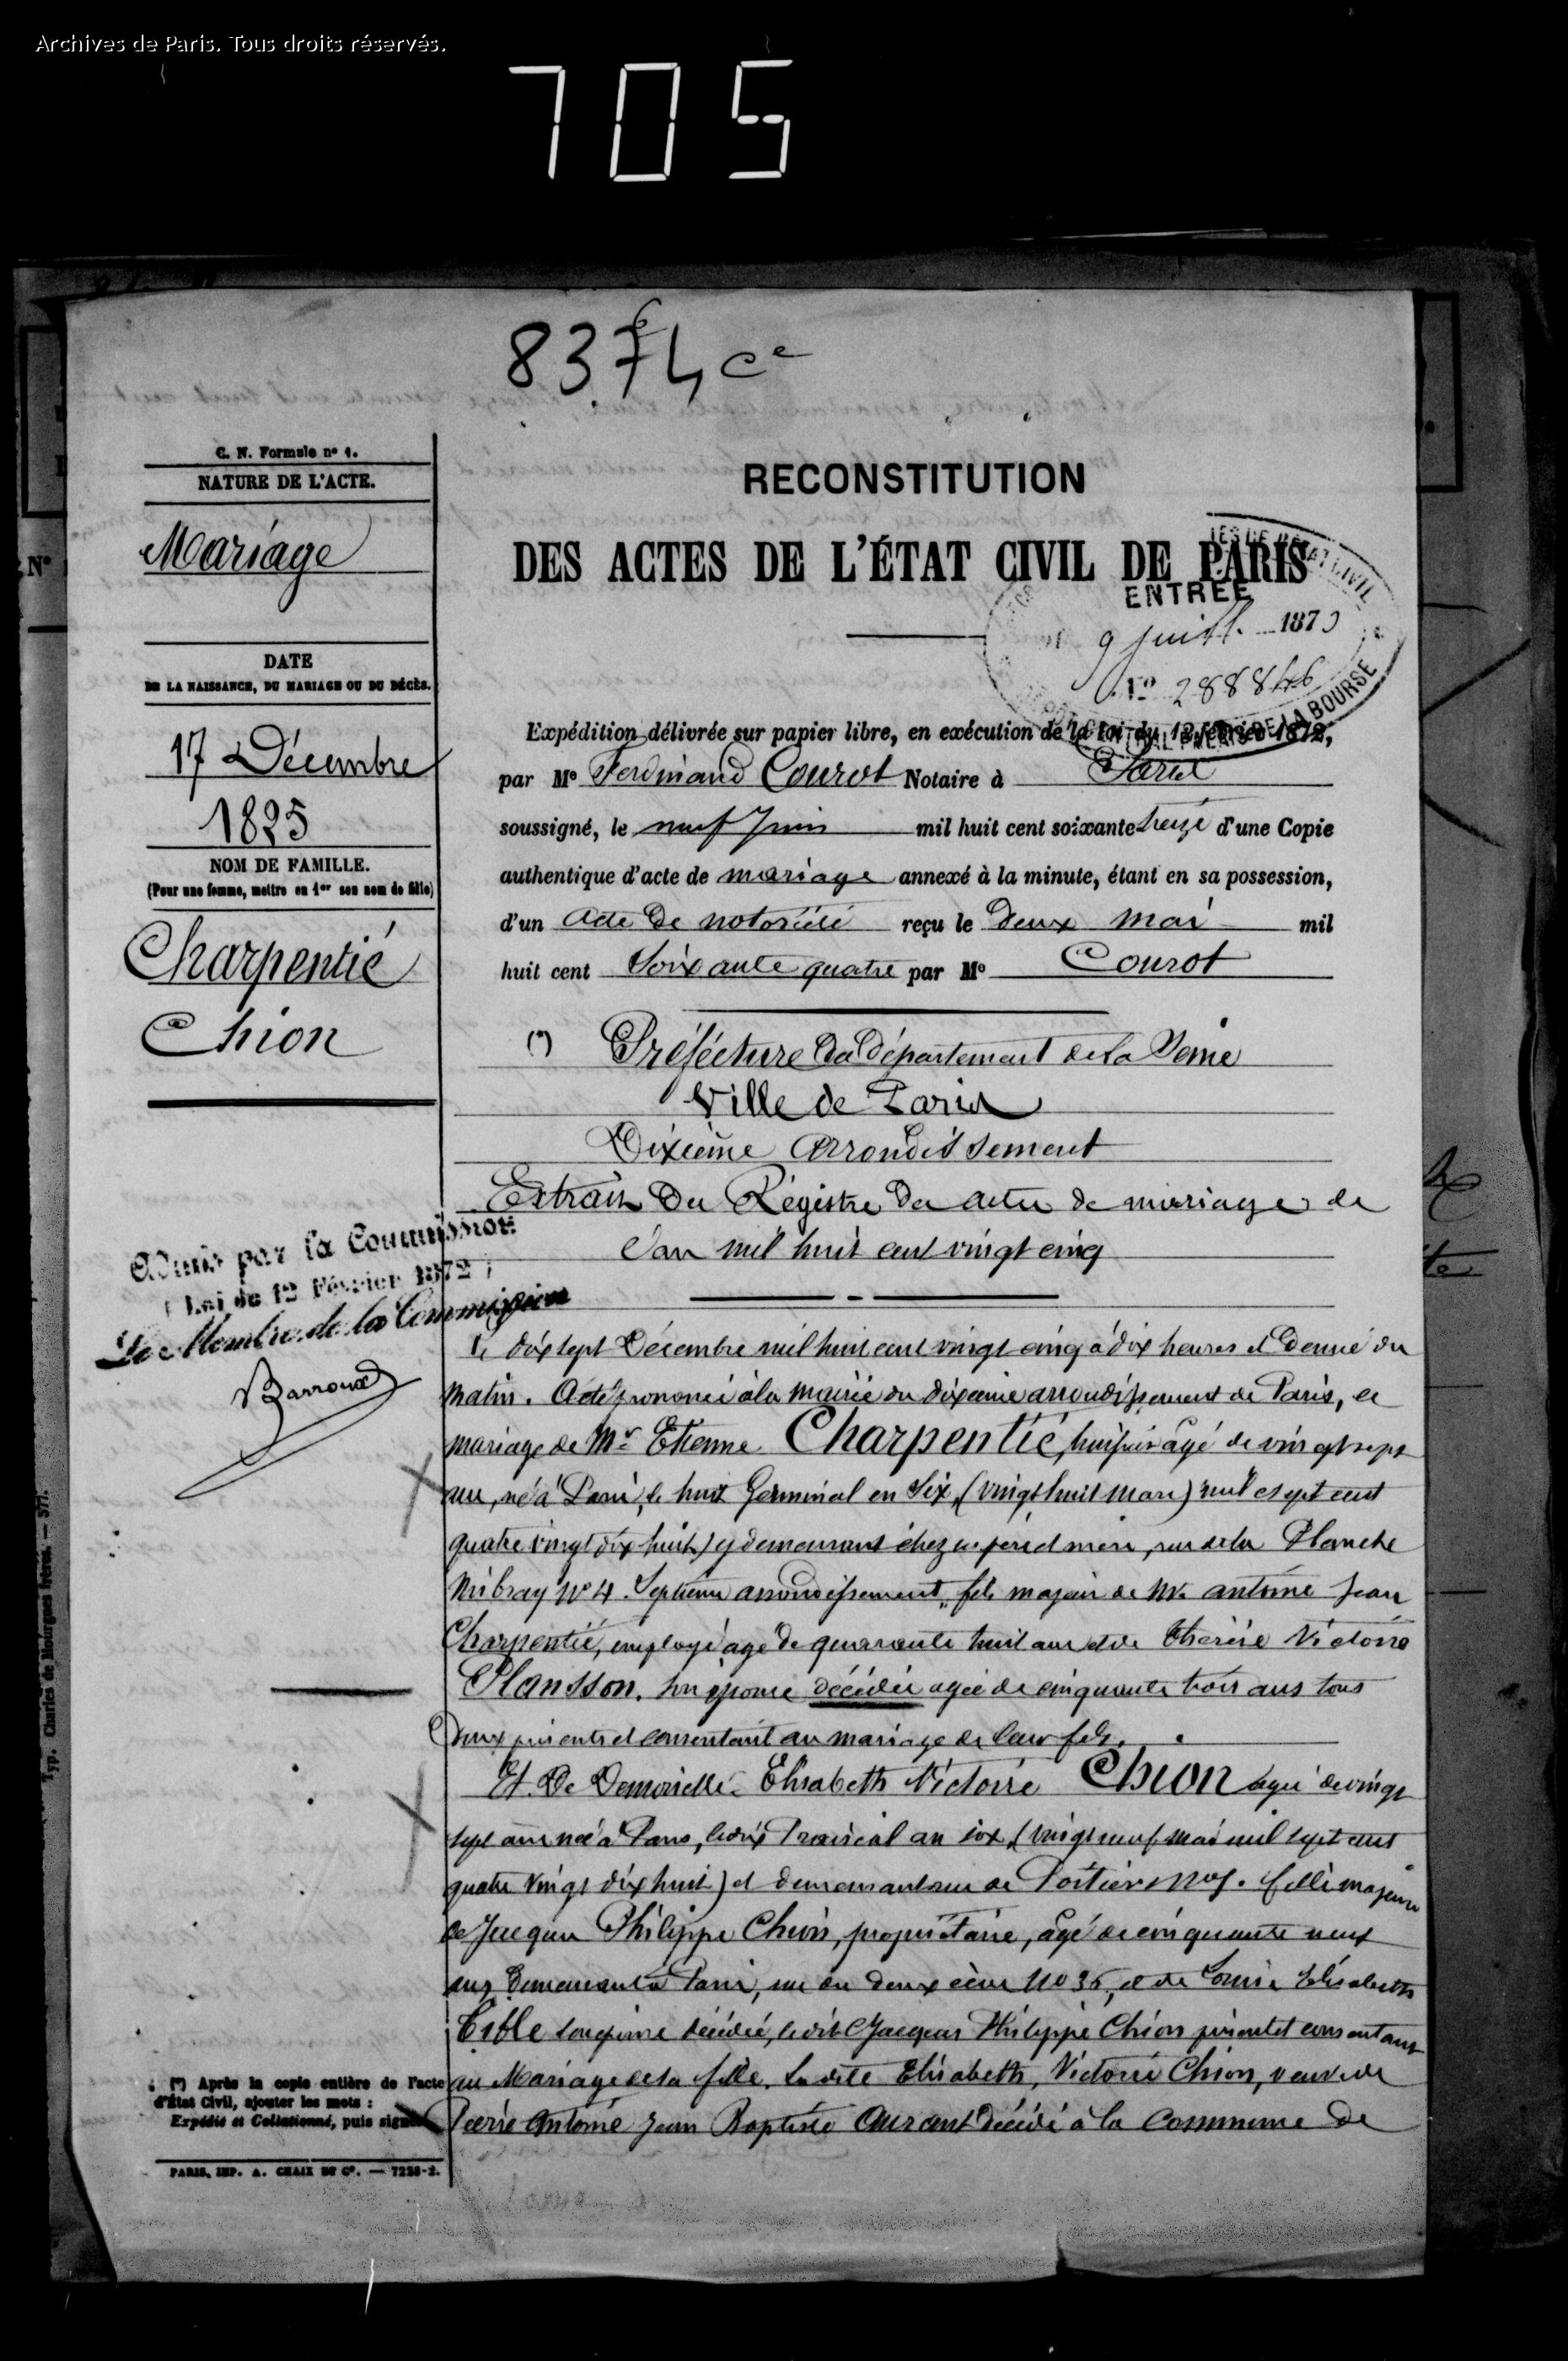 Archives de Paris. Tous droits réservés.
705
8374 ce
C. N. Formule nº 1.
NATURE DE L'ACTE.
Mariage
DATE
DE LA NAISSANCE, DU MARIAGE OU DU DÉCÈS.
17 Décembre
1825
NOM DE FAMILLE.
(Pour une femme, mettre en 1er son nom de fille)
Charpentié
Chion
Admis par la Commission
(Loi du 12 Février 1872)
Le Membre de la Commission
Barroux
RECONSTITUTION
DES ACTES DE L'ÉTAT CIVIL DE PARIS
ENTRÉE
9 juill. 1873
Nº 288846
PALAIS DE LA BOURSE
Expédition délivrée sur papier libre, en exécution de la loi du 12 février 1872,
par Me Ferdinand Courot Notaire à Paris
soussigné, le neuf Juin mil huit cent soixante treize d'une Copie
authentique d'acte de mariage annexé à la minute, étant en sa possession,
d'un acte de notoriété reçu le deux mai mil
huit cent Soixante quatre par Me Courot
(*) Préfecture du Département de la Seine
Ville de Paris
Dixième Arrondissement
Extrait du Régistre des actes de mariages de
l'an mil huit cent vingt cinq
Le dix sept Décembre mil huit cent vingt cinq à dix heures et demie du
matin. Acte prononcé à la mairie du dixième arrondissement de Paris, le
mariage de Mr Etienne Charpentié, huissier âgé de vingt sept
ans, né à Paris, le huit Germinal an Six, (vingt huit mars) mil sept cent
quatre vingt dix huit) y demeurant chez ses père et mère, rue de la Planche
Mibray Nº 4. Septième arrondissement, fils majeur de Mr. antoine Jean
Charpentié, employé âgé de quarante huit ans et de Thérèse Victoire
Plansson, son épouse décédée agée de cinquante trois ans tous
deux présents et consentant au mariage de leur fils.
Et De Demoiselle Elisabeth Victoire Chion agée de vingt
sept ans née à Paris, le dix Prairial an six, (vingt neuf mai mil sept cent
quatre vingt dix huit) et demeurant rue de Poitiers fille majeure
de Jacques Philippe Chion, propriétaire, âgé de cinquante neuf
ans demeurant à Paris, rue des deux écus Nº 36, et de Louise Elisabeth
son épouse décédée, ledit Jacques Philippe Chion présent et consentant
au Mariage de sa fille. Ladite Elisabeth, Victoire Chion, veuve de
Pierre Antoine Jean Baptiste décédé à la Commune de
(*) Après la copie entière de l'acte
d'État Civil, ajouter les mots :
Expédié et Collationné, puis signer
PARIS, IMP. A. CHAIX ET Cº. — 7238-2.
Typ. Charles de Mourgues frères. — 577.
Nº